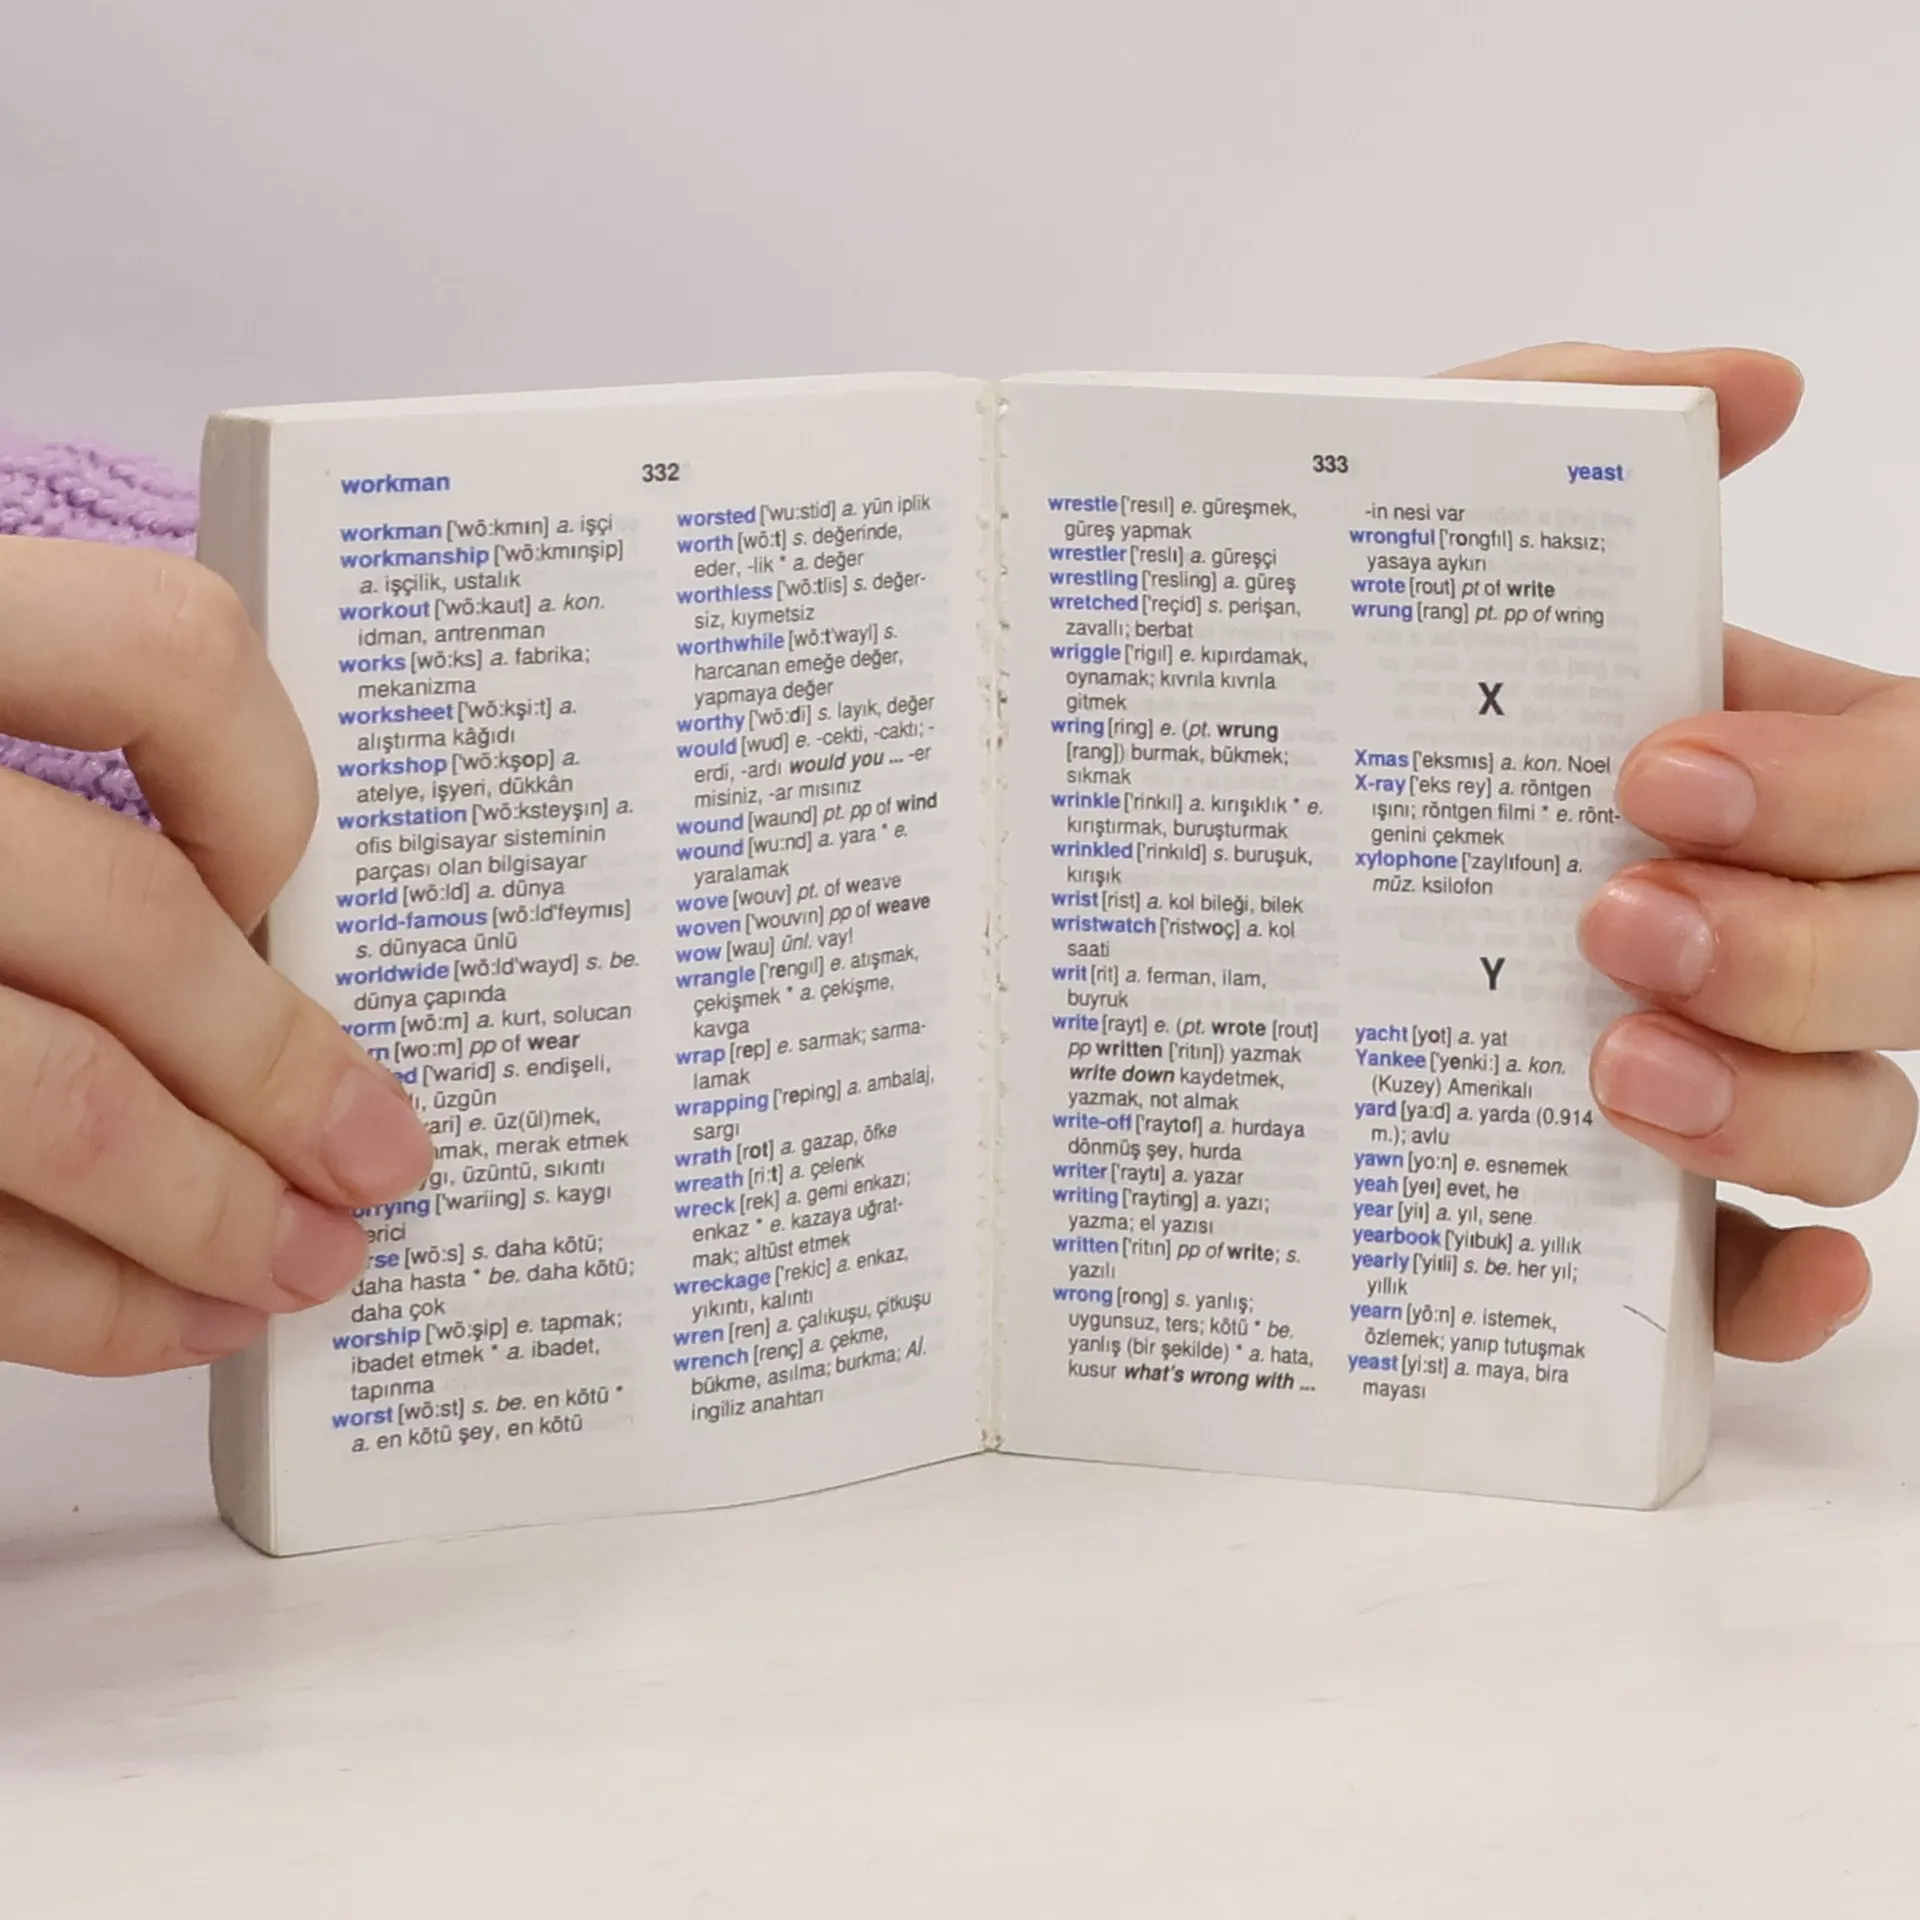 workman
332
workman ['wõ:kmın] a. işçi
workmanship ['wõ:kmınşip]
a. işçilik, ustalık
workout ['wõ:kaut] a. kon.
idman, antrenman
works [wõ:ks] a. fabrika;
mekanizma
worksheet ['wõ:kşi:t] a.
alıştırma kâğıdı
workshop ['wõ:kşop] a.
atelye, işyeri, dükkân
workstation ['wõ:ksteyşın] a.
ofis bilgisayar sisteminin
parçası olan bilgisayar
world [wõ:ld] a. dünya
world-famous [wõ:ld'feymıs]
s. dünyaca ünlü
worldwide [wõ:ld'wayd] s. be.
dünya çapında
worm [wõ:m] a. kurt, solucan
[wo:rn] pp of wear
['warid] s. endişeli,
üzgün
e. üz(ül)mek,
merak etmek
üzüntü, sıkıntı
['wariing] s. kaygı
[wõ:s] s. daha kötü;
daha hasta * be. daha kötü;
daha çok
worship ['wõ:şip] e. tapmak;
ibadet etmek * a. ibadet,
tapınma
worst [wõ:st] s. be. en kötü *
a. en kötü şey, en kötü
worsted ['wu:stid] a. yün iplik
worth [wõ:t] s. değerinde,
eder, -lik * a. değer
worthless ['wõ:tlis] s. değer-
siz, kıymetsiz
worthwhile [wõ:t'wayl] s.
harcanan emeğe değer,
yapmaya değer
worthy ['wõ:di] s. layık, değer
would [wud] e. -cekti, -caktı; -
erdi, -ardı would you ... -er
misiniz, -ar mısınız
wound [waund] pt. pp of wind
wound [wu:nd] a. yara * e.
yaralamak
wove [wouv] pt. of weave
woven ['wouvın] pp of weave
wow [wau] ünl. vay!
wrangle ['rengıl] e. atışmak,
çekişmek * a. çekişme,
kavga
wrap [rep] e. sarmak; sarma-
lamak
wrapping ['reping] a. ambalaj,
sargı
wrath [rot] a. gazap, öfke
wreath [ri:t] a. çelenk
wreck [rek] a. gemi enkazı;
enkaz * e. kazaya uğrat-
mak; altüst etmek
wreckage ['rekic] a. enkaz,
yıkıntı, kalıntı
wren [ren] a. çalıkuşu, çitkuşu
wrench [renç] a. çekme,
bükme, asılma; burkma; AI.
ingiliz anahtarı
333
yeast
wrestle ['resıl] e. güreşmek,
güreş yapmak
wrestler ['reslı] a. güreşçi
wrestling ['resling] a. güreş
wretched ['reçid] s. perişan,
zavallı; berbat
wriggle ['rigıl] e. kıpırdamak,
oynamak; kıvrıla kıvrıla
gitmek
wring [ring] e. (pt. wrung
[rang]) burmak, bükmek;
sıkmak
wrinkle ['rinkıl] a. kırışıklık * e.
kırıştırmak, buruşturmak
wrinkled ['rinkıld] s. buruşuk,
kırışık
wrist [rist] a. kol bileği, bilek
wristwatch ['ristwoç] a. kol
saati
writ [rit] a. ferman, ilam,
buyruk
write [rayt] e. (pt. wrote [rout]
pp written ['ritın]) yazmak
write down kaydetmek,
yazmak, not almak
write-off ['raytof] a. hurdaya
dönmüş şey, hurda
writer ['raytı] a. yazar
writing ['rayting] a. yazı;
yazma; el yazısı
written ['ritın] pp of write; s.
yazılı
wrong [rong] s. yanlış;
uygunsuz, ters; kötü * be.
yanlış (bir şekilde) * a. hata,
kusur what's wrong with ...
-in nesi var
wrongful ['rongfıl] s. haksız;
yasaya aykırı
wrote [rout] pt of write
wrung [rang] pt. pp of wring
X
Xmas ['eksmıs] a. kon. Noel
X-ray ['eks rey] a. röntgen
ışını; röntgen filmi * e. rönt-
genini çekmek
xylophone ['zaylıfoun] a.
müz. ksilofon
Y
yacht [yot] a. yat
Yankee ['yenki:] a. kon.
(Kuzey) Amerikalı
yard [ya:d] a. yarda (0.914
m.); avlu
yawn [yo:n] e. esnemek
yeah [yeı] evet, he
year [yiı] a. yıl, sene
yearbook ['yiıbuk] a. yıllık
yearly ['yiıli] s. be. her yıl;
yıllık
yearn [yõ:n] e. istemek,
özlemek; yanıp tutuşmak
yeast [yi:st] a. maya, bira
mayası